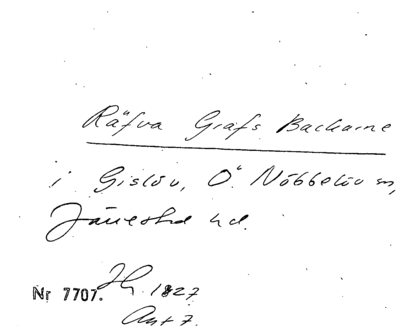 Räfva Grafs Backarne
i Gislöv, Ö. Nöbbelöv sn,
Järrestad hd.
Nr 7707. 1827
Ant 7.